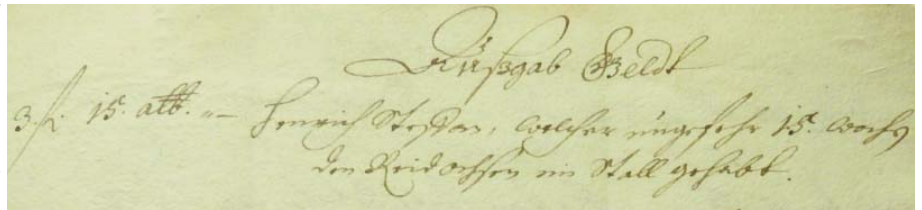 Außgab Geldt
3. fl. 15. alb. -- Henrich Steffan, welcher ungefehr 15. wochen
den Reidochsen im Stall gehabt.